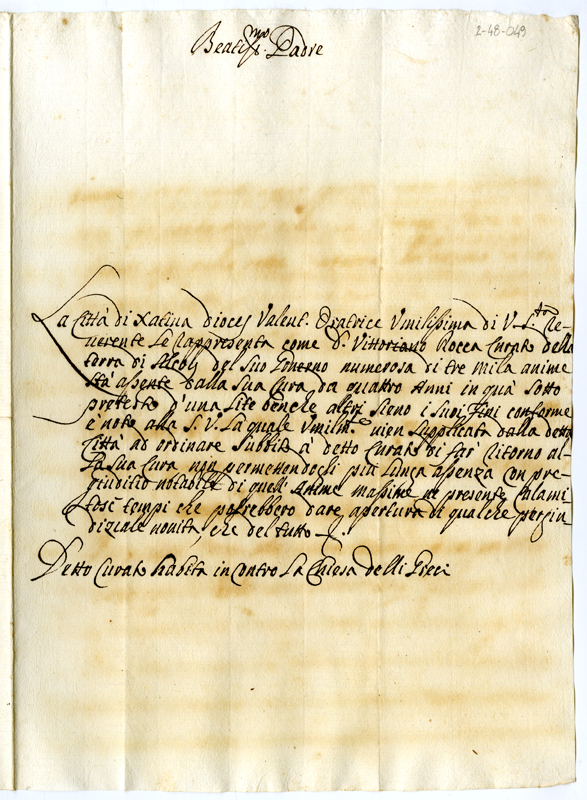 2-48-049
Beatiss.mo Padre
La Città di Xatiua dioces Valent. Oratrice Vmilissima di V. S.tà re-
uerente Le rappresenta come Dn Vittoriano Rocca Curato della
terra di del suo numerosa di tre mila anime
stà assente dalla sua Cura da quattro Anni in quà sotto
pretesto d'una Lite benche altri sieno i suoi fini conforme
è noto alla S. V. La quale vmilm.e vien supplicata dalla detta
Città ad ordinare subbito à detto Curato di far ritorno al-
la sua Cura non permettendogli più lunga assenza con pre-
giuditio notabile di quell' Anime massime ne presenti Calami
tosi tempi che potrebbero dare apertura di qualche pregiu
diziale nouità, che del tutto
Detto Curato habita incontro La Chiesa delli Greci